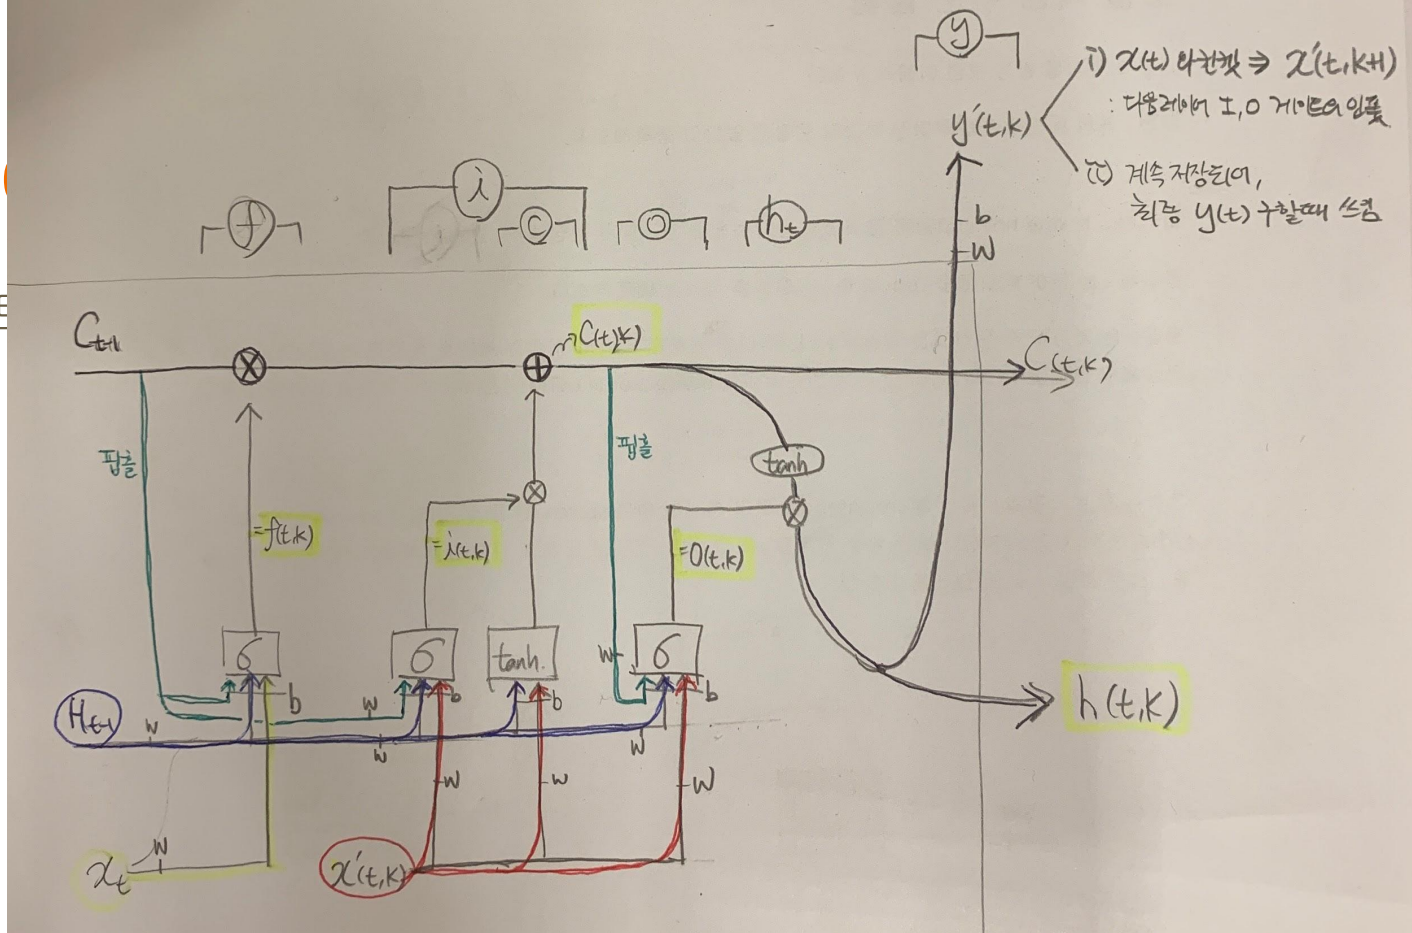 y
i) x(t) 와 한쌍 ⇒ x'(t,k+1)
: 다음레이어 I,O 게이트의 인풋
y'(t,k)
ii) 계속 저장되어,
최종 y(t) 구할때 쓰임
b
W
f
i
c
o
h_t
C_t-1
C(t,k)
C(t,k)
핍홀
핍홀
tanh
=f(t,k)
=i(t,k)
=O(t,k)
σ
σ
tanh.
W
σ
b
W
b
b
b
H_t-1
W
W
W
h(t,k)
W
W
W
W
x_t
x'(t,k)